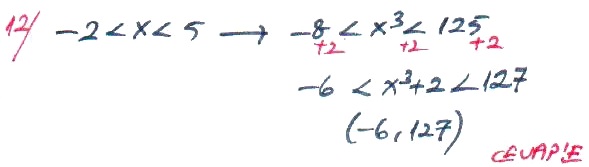 12/ -2 < x < 5 → -8 < x³ < 125
+2 +2 +2
-6 < x³+2 < 127
(-6, 127)
CEVAP:E